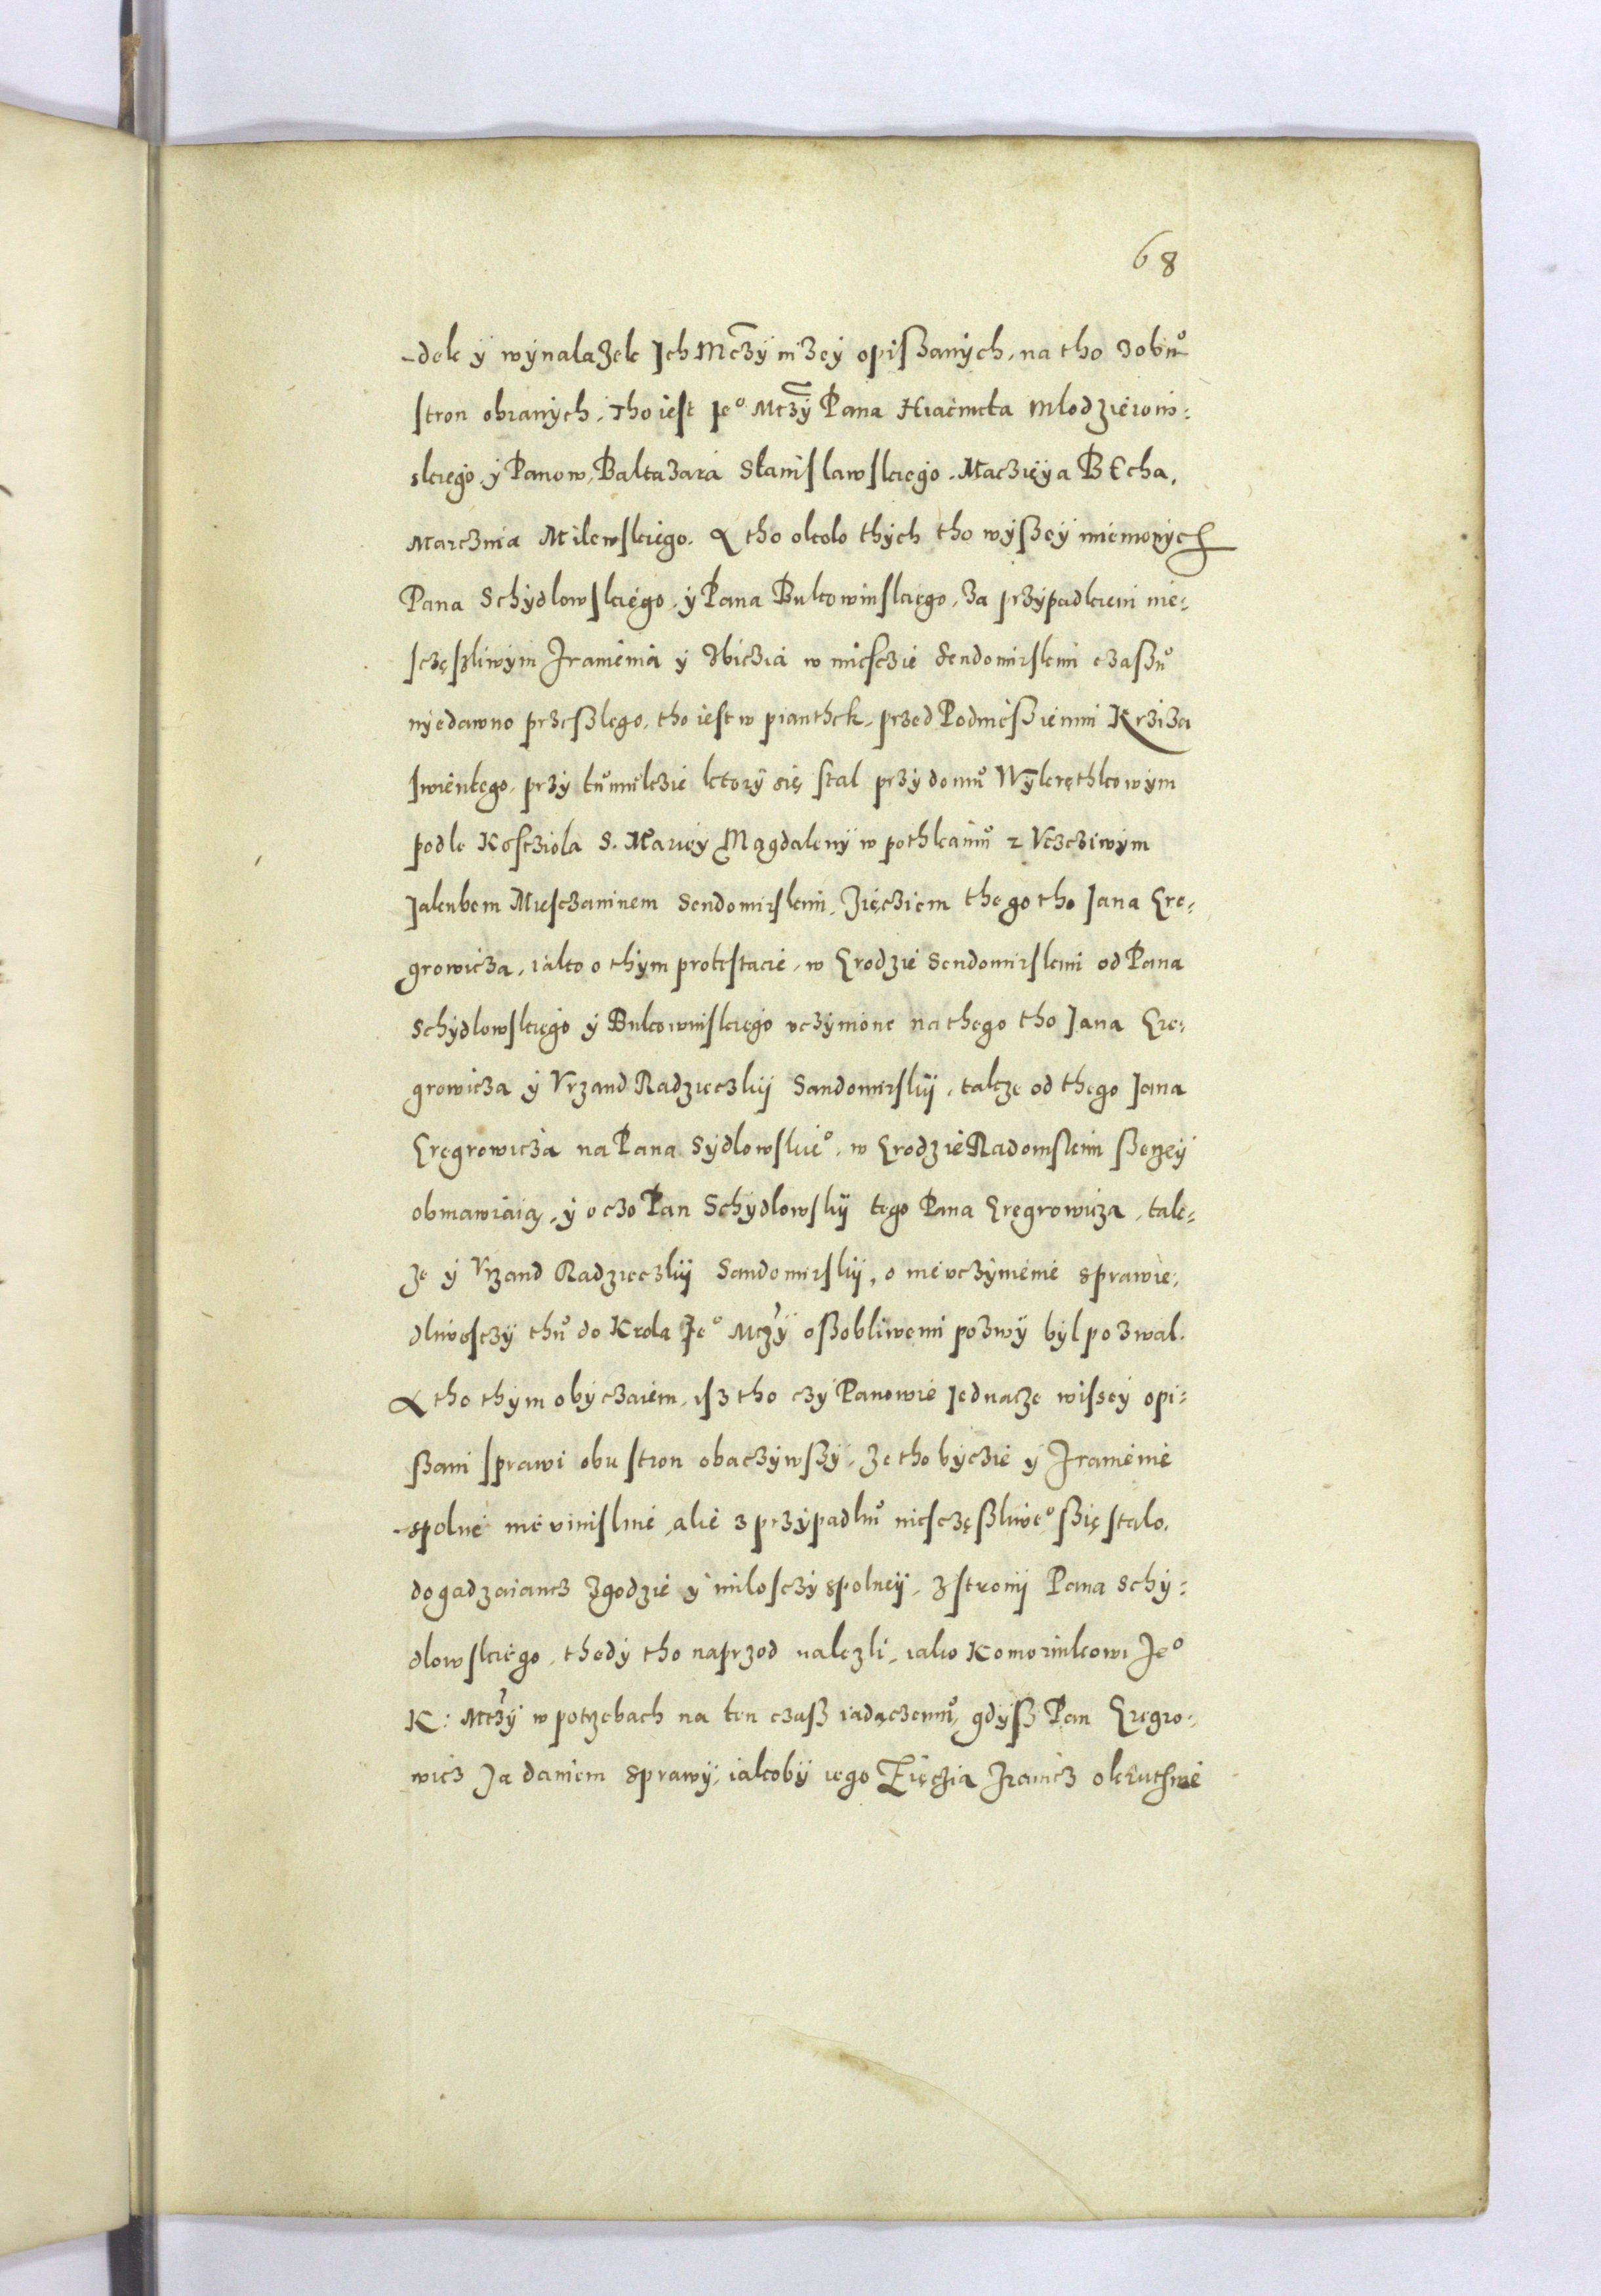 68
-dek ÿ wÿnalazek Jch Mczÿ nizeÿ opißanÿch, na tho z obuͦ
stron obranÿch, Tho iest Jeº Mczÿ Pana Hiacincta Mlodzieiows:
skiego, ÿ Panow, Baltazara Stanislawskiego, Macziẹÿa BEcha,
Marczina Milewskiego. A tho około thÿch tho wÿßeÿ mienionÿch
Pana Schÿdlowskiego, ÿ Pana Bukowinskiego, za przÿpadkiem nie:
sczęszliwÿm Zranienia ÿ Zbiczia w miesczie Sendomirskim czaßuͦ
nÿedawno przeßlego, tho iest w pianthek, przed Podnießienim Krziza
swientego, przÿ tuͦmulczie ktorÿ się stal przÿ domuͦ Wÿkrethkowÿm
podle Kosczioła S. Marieÿ Magdalenÿ w pothkaniuͦ z Vczcziwÿm
Jakubem Miesczaninem Sendomirskim, Zięcziem thego tho Jana Gre:
growicza, iako o thÿm protestacie, w Grodzie Sendomirskim od Pana
Schÿdlowskiego ÿ Bukowinskiego vczÿnione na thego tho Jana Gre:
growicza ÿ Vrzand Radzieczkij Sandomirskij, takze od thego Jana
Gregrowicza na Pana Sÿdlowskieº, w Grodzie Radomskim ßerzeÿ
obmawiaią, ÿ o czo Pan Schÿdlowskÿ tego Pana Gregrowicza, tak:
ze ÿ Vrzand Radzieczkij Sandomirskij, o nieuczÿnienie sprawie:
dliwosczÿ thuͦ do Krola Jeº Mczÿ oßobliwemi pozwÿ bÿl pozwal.
A tho thÿm obÿczaiem, isz tho czÿ Panowie Jednacze wisseÿ opi:
ßani sprawi obu stron obaczÿwßÿ, ze tho bÿczie ÿ Zranienie
spolne nie vmislnie, alie z przÿpadkuͦ niesczęßliweº ßię stalo,
dogadzaiancz zgodzie ÿ milosczÿ spolneÿ, z stronÿ Pana Schÿ:
dlowskiego, thedÿ tho naprzod nalezli, iako Komornikowi Jeº
K: Mczÿ w potrzebach na ten czaß iadączemuͦ, gdÿß Pan Gregro:
wicz Za daniem sprawÿ, iakobÿ iego Zięczia Zranicz okruthnie